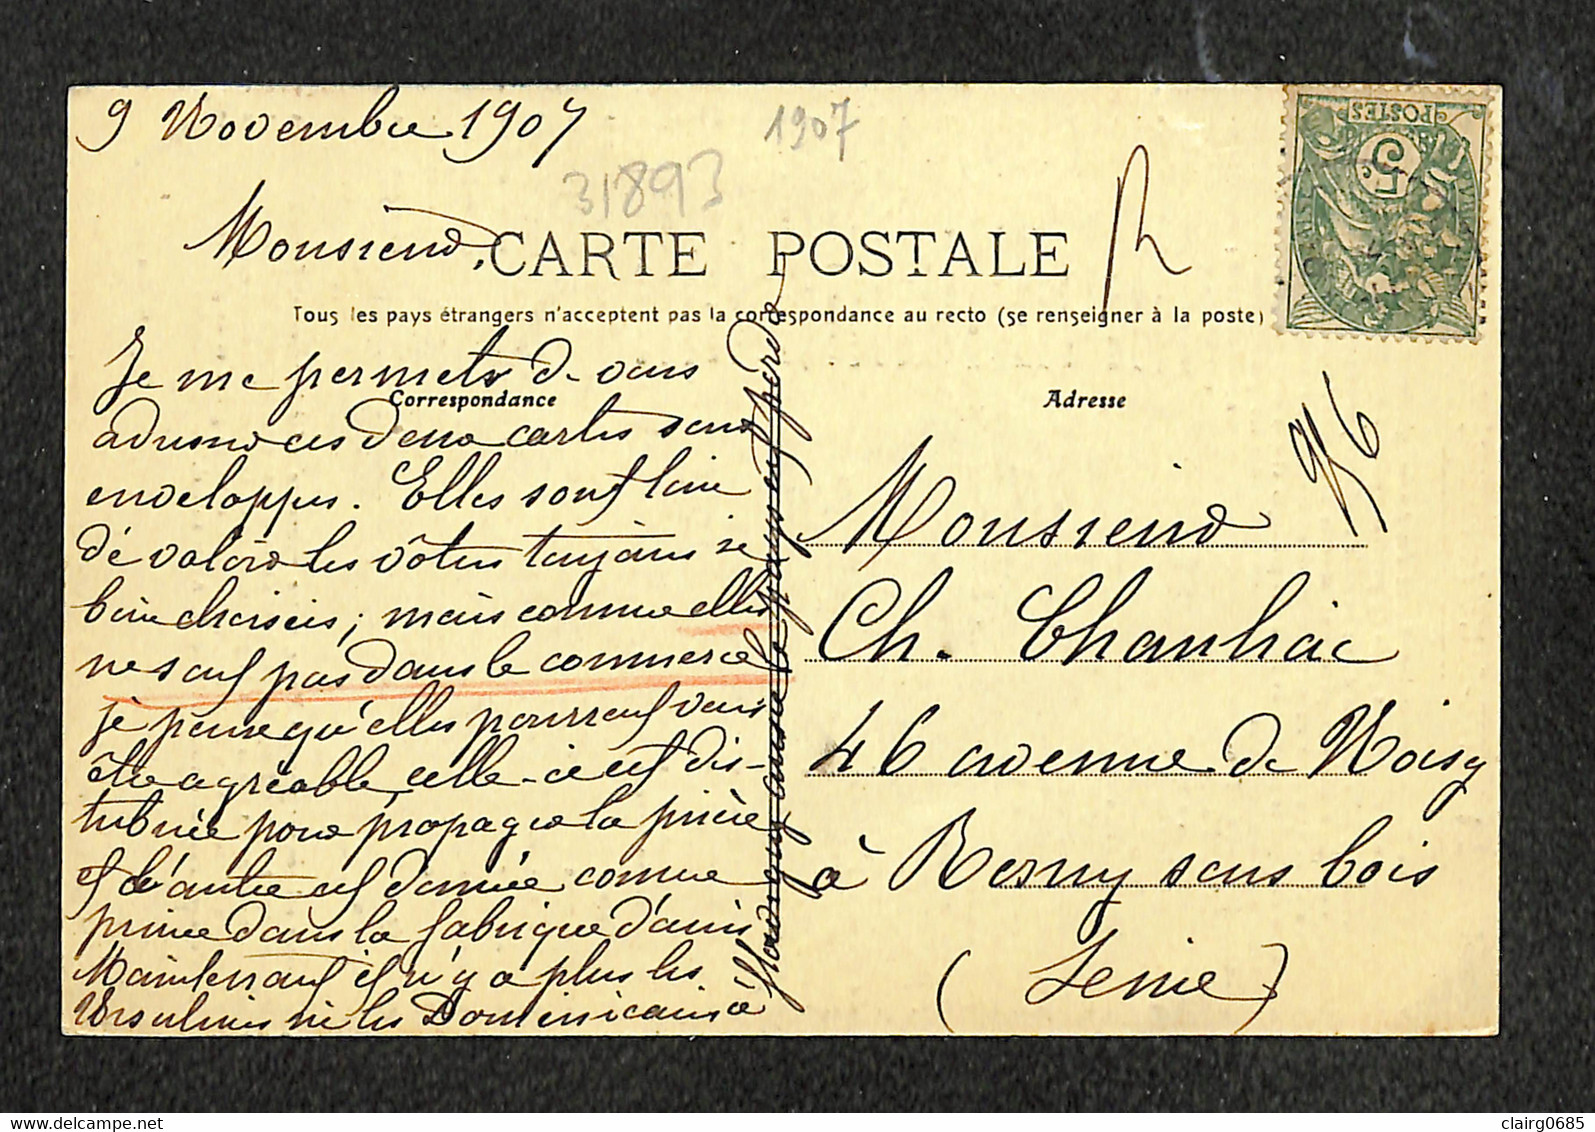 9 Novembre 1907
1907
31893
Monsieur,
CARTE POSTALE
R
POSTES
5c
Tous les pays étrangers n'acceptent pas la correspondance au recto (se renseigner à la poste)
Je me permets de vous
Correspondance
adresser ces deux cartes sans
enveloppes. Elles sont loin
de valoir les vôtres toujours si
bien choisies; mais comme elles
ne sont pas dans le commerce
je pense qu'elles pourront vous
être agréable, celle-ci est dis-
tribuée pour propager la prière
et l'autre est donnée comme
prime dans la fabrique d'anis
Maintenant il n'y a plus les
Ursulines ni les Dominicains à
Flavigny aussi le pays en perd
Adresse
96
Monsieur
Ch. Chanhac
46 avenue de Noisy
à Rosny sous bois
(Seine)
clairg0685